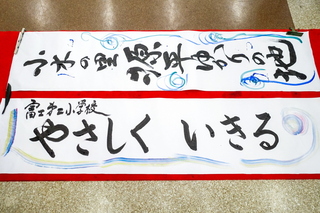 小木の里 源平ゆかりの地
富士第二小学校
やさしく いきる